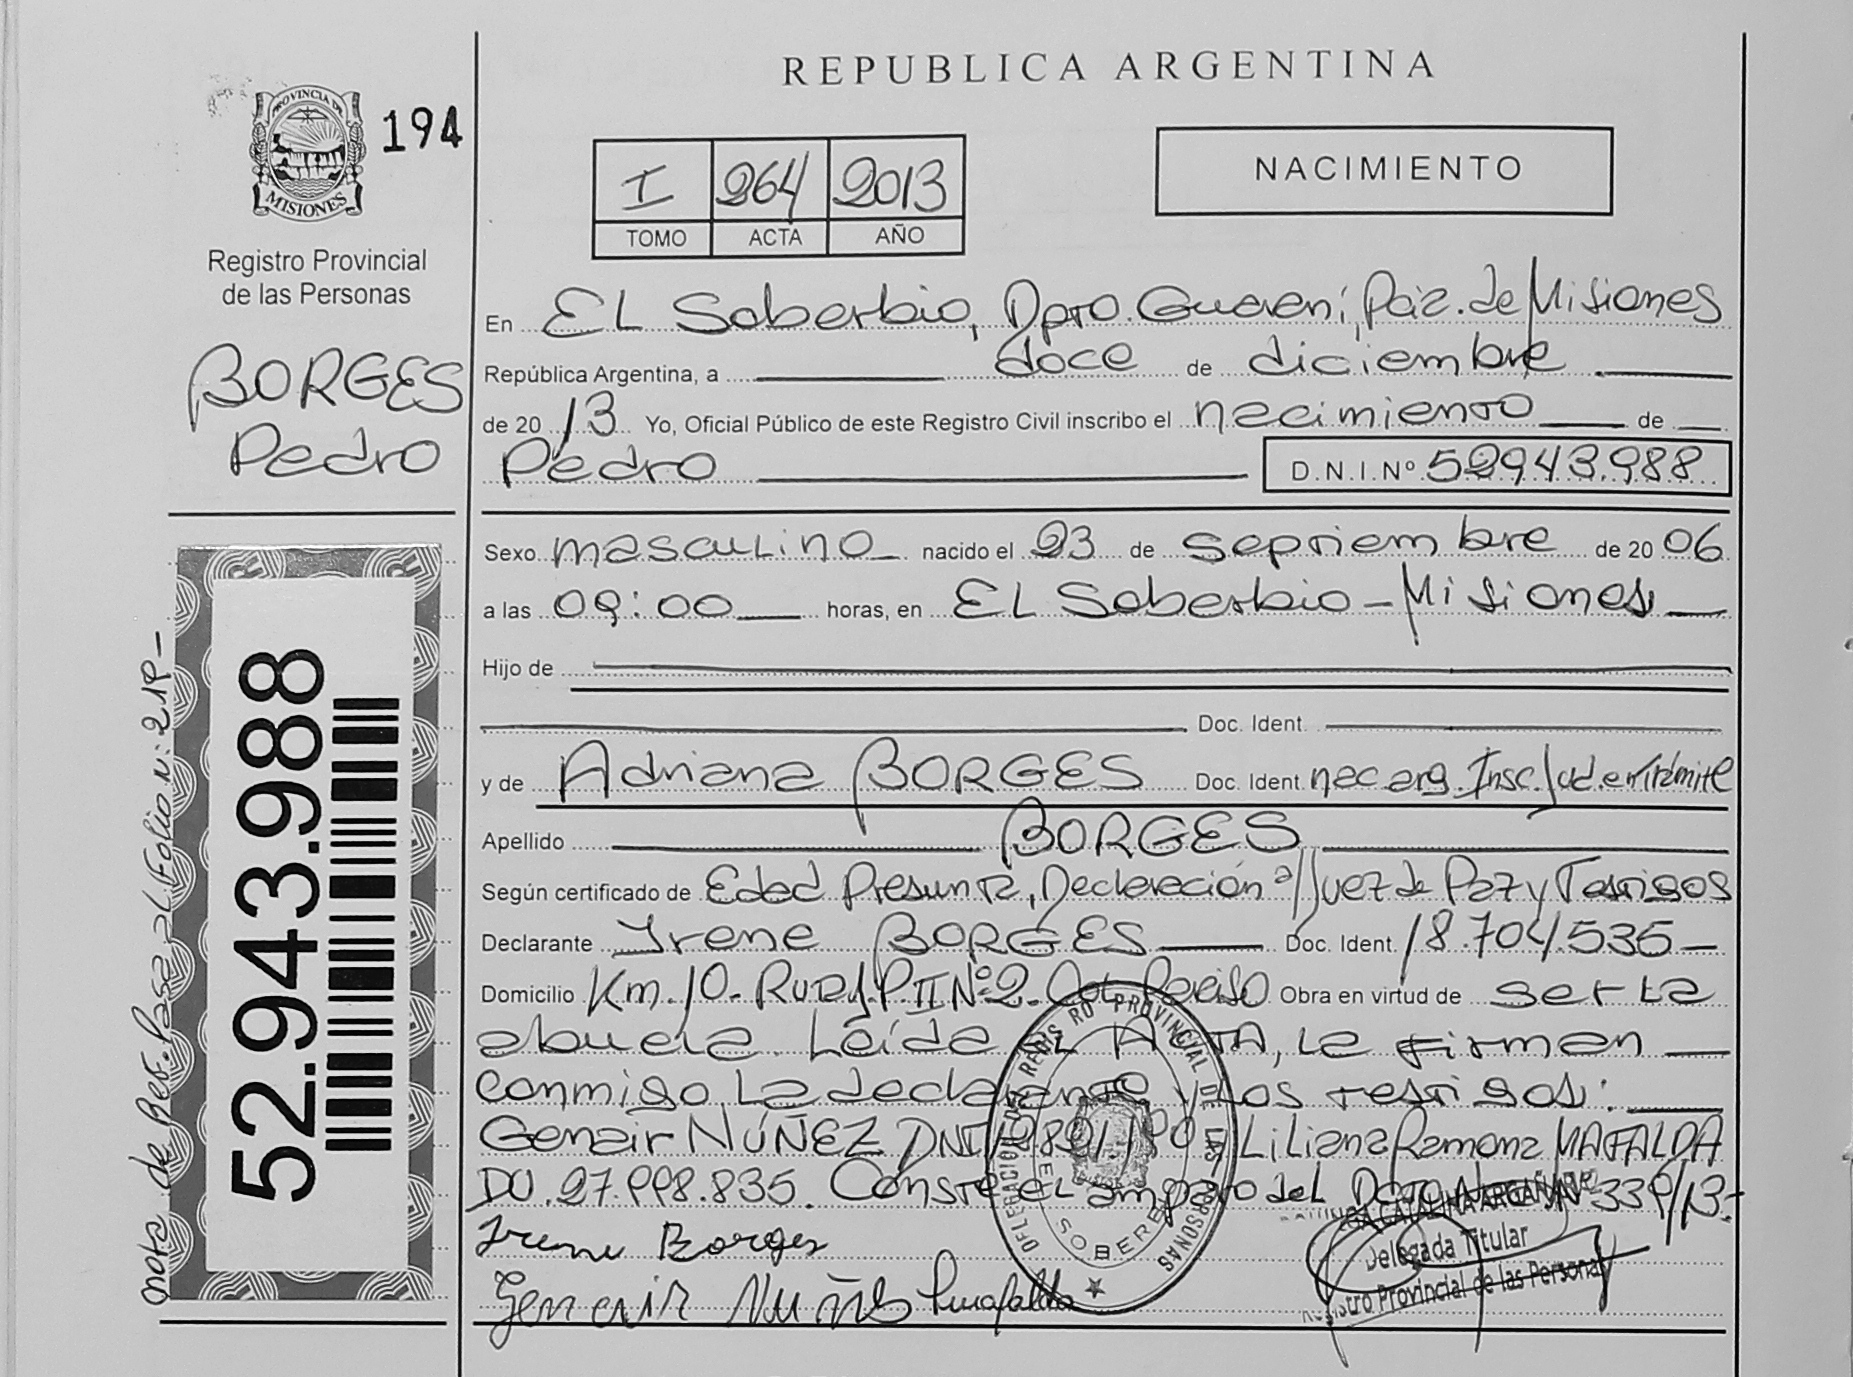 REPUBLICA ARGENTINA
PROVINCIA DE
MISIONES
194
Registro Provincial
de las Personas
BORGES
Pedro
I 264 2013
TOMO ACTA AÑO
NACIMIENTO
En EL Soberbio, Dpto. Guaraní, Pcia. de Misiones
República Argentina, a doce de diciembre
de 2013 Yo, Oficial Público de este Registro Civil inscribo el nacimiento de
Pedro D.N.I.Nº 52943.988
Sexo masculino nacido el 23 de septiembre de 2006
a las 09:00 horas, en EL Soberbio - Misiones
Hijo de
Doc. Ident.
y de Adriana BORGES Doc. Ident. nac. arg. Insc. Jud. en Trámite
Apellido BORGES
Según certificado de Edad Presunta, Declaración a/ Juez de Paz y Testigos
Declarante Irene BORGES Doc. Ident. 18.704.535
Domicilio Km. 10 - Ruta P II Nº 2. Col. Obra en virtud de ser la
abuela. Leída el ACTA, la firman
conmigo la declarante y los testigos:
Genair NÚÑEZ DNI Liliana Ramona MAFALDA
DU. 27.998.835. Conste el amparo del Dcto. Nº 339/13.-
Irene Borges
Genair Nuñes Mafalda
DELEGACION DEL REGISTRO PROVINCIAL DE LAS PERSONAS
CATALINA ARGAÑA
Delegada Titular
Registro Provincial de las Personas
52.943.988
nota de Ref. Pasa al Folio Nº: 219-